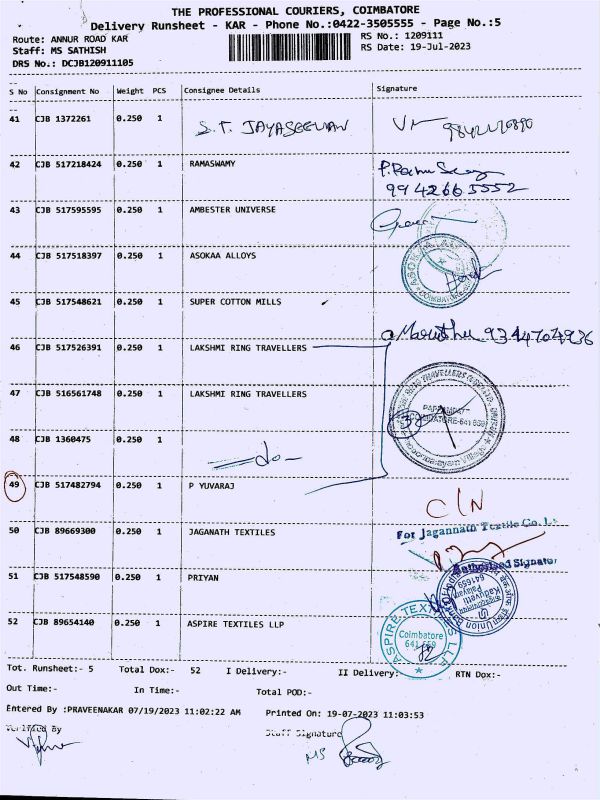 THE PROFESSIONAL COURIERS, COIMBATORE
Delivery Runsheet - KAR - Phone No.:0422-3505555 - Page No.:5
Route: ANNUR ROAD KAR
Staff: MS SATHISH
DRS No.: DCJB120911105
RS No.: 1209111
RS Date: 19-Jul-2023
S No Consignment No Weight PCS Consignee Details Signature
41 CJB 1372261 0.250 1 S.T. JAYASEELAN
42 CJB 517218424 0.250 1 RAMASWAMY
99426 65552
43 CJB 517595595 0.250 1 AMBESTER UNIVERSE
44 CJB 517518397 0.250 1 ASOKAA ALLOYS
45 CJB 517548621 0.250 1 SUPER COTTON MILLS
46 CJB 517526391 0.250 1 LAKSHMI RING TRAVELLERS
47 CJB 516561748 0.250 1 LAKSHMI RING TRAVELLERS
48 CJB 1360475 0.250 1 -do-
49 CJB 517482794 0.250 1 P YUVARAJ C/N
50 CJB 89669300 0.250 1 JAGANATH TEXTILES
For Jagannath Textile Co. L
Authorised Signator
51 CJB 517548590 0.250 1 PRIYAN
52 CJB 89654140 0.250 1 ASPIRE TEXTILES LLP
ASPIRE TEXTILES LLP
Coimbatore
641 659
Tot. Runsheet:- 5 Total Dox:- 52 I Delivery:- II Delivery:- RTN Dox:-
Out Time:- In Time:- Total POD:-
Entered By :PRAVEENAKAR 07/19/2023 11:02:22 AM Printed On: 19-07-2023 11:03:53
Verified By Staff Signature
MS